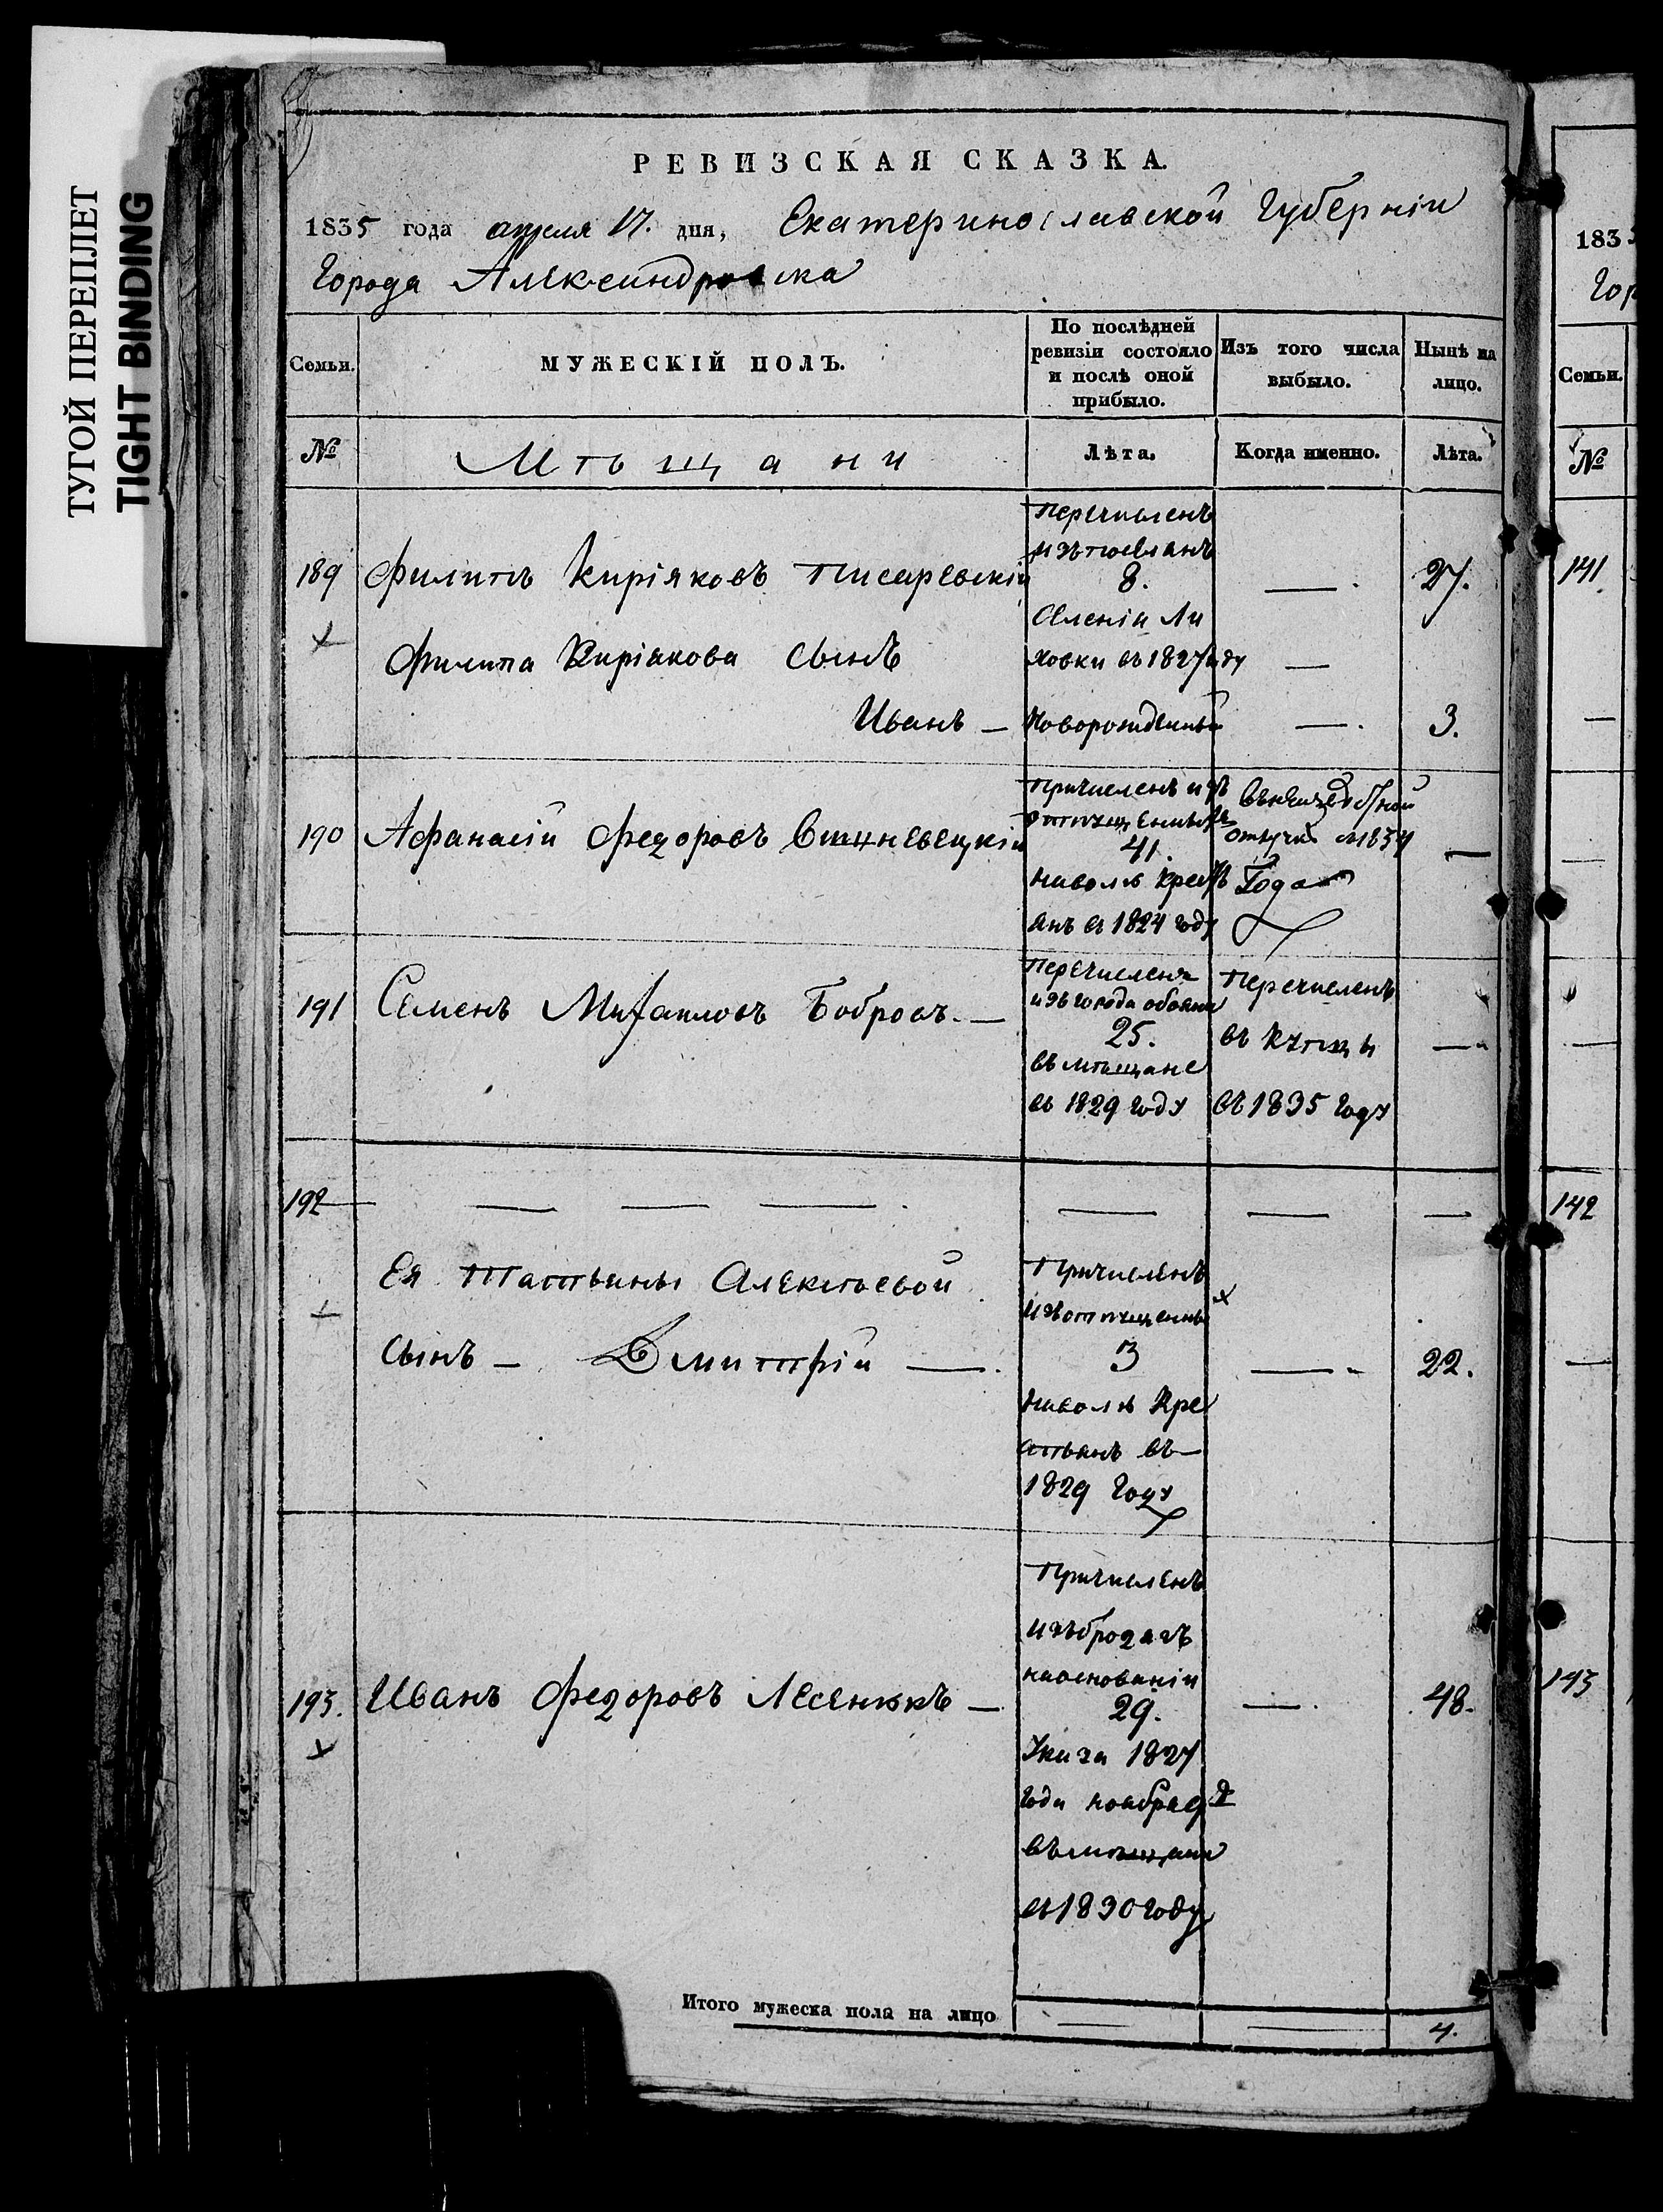 ТУГОЙ ПЕРЕПЛЕТ
TIGHT BINDING
РЕВИЗСКАЯ СКАЗКА.
1835 года апреля 17. дня, Екатеринославской Губерніи
Города Александровска
Семьи.
МУЖЕСКІЙ ПОЛЪ.
По послѣдней
ревизіи состояло
и послѣ оной
прибыло.
Изъ того числа
выбыло.
Нынѣ на
лицо.
№
Мѣщани
Лѣта.
Когда именно.
Лѣта.
189
Филипъ Киріяковъ Писаревскій
Перечисленъ
изъ поселянъ
8.
Селеніи Ли
ховки въ 1827 году
27.
Филипа Киріякова сынъ
Иванъ
Новорожденный
3.
190
Афанасій Федоровъ Вишневецкій
Причисленъ изъ
отпущенныхъ
41.
наволю крест
янъ въ 1824 году
отлучке с 1834
Года
191
Семенъ Михаиловъ Бобровъ.
Перечисленъ
изъ города
25.
въ мѣщане
въ 1829 году
Перечисленъ
въ купцы
въ 1835 году
192
Ея Татьяны Алексѣевой
сынъ - Дмитрій
Причисленъ
изъ отпущенны
3
наволю Кре
стьянъ въ
1829 году
22.
193.
Иванъ Федоровъ Лесенюкъ
Причисленъ
изъ бродягъ
наоснованіи
29.
Указа 1827
года ноября 9
въ мѣщани
въ 1830 году
48.
Итого мужеска пола на лицо
4.
183
Гор
Семьи.
№
141
142
143